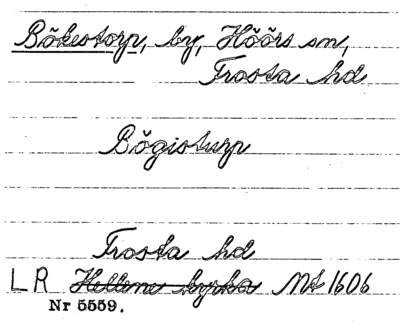 Bökestorp, by, Höörs sn,
Frosta hd
Bögisturp
Frosta hd
LR Hellene kyrka Mt 1606
Nr 5559.